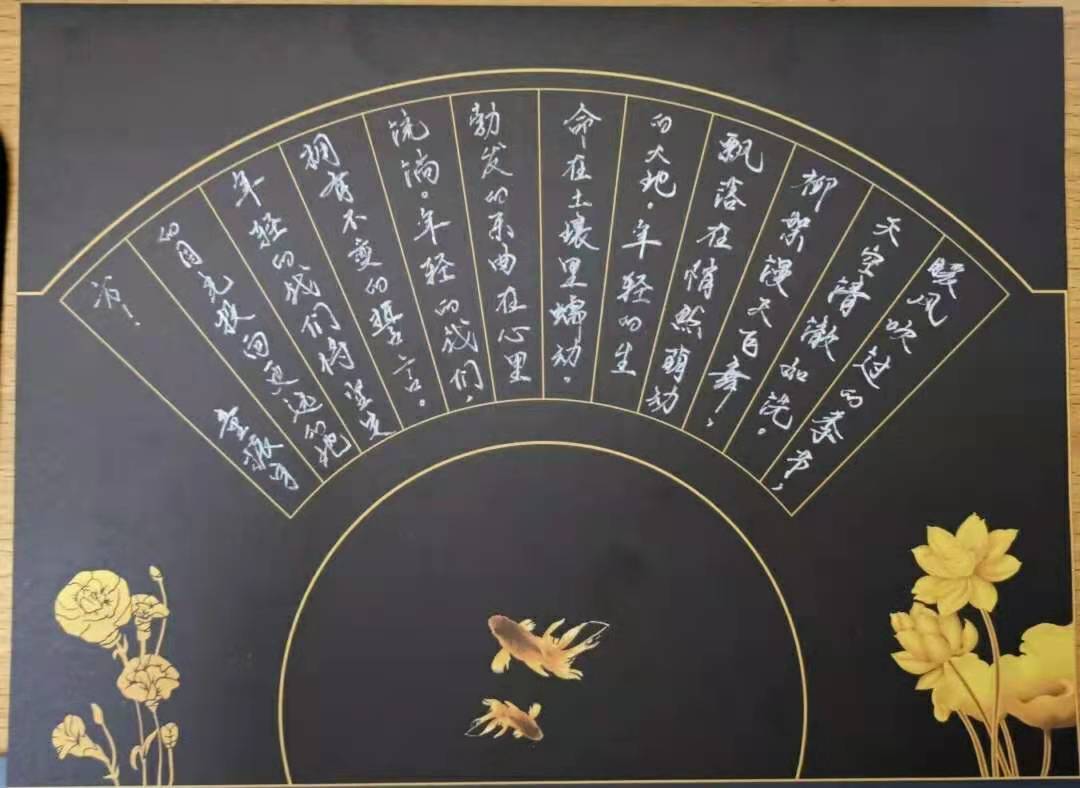 暖风吹过的季节，
天空清澈如洗。
柳絮漫天百舞，
飘落在悄然萌动
的大地。年轻的生
命在土壤里蠕动。
勃发的乐曲在心里
流淌。年轻的我们，
拥有不变的誓言。
年轻的我们将坚定
的目光投向更远的地
方！